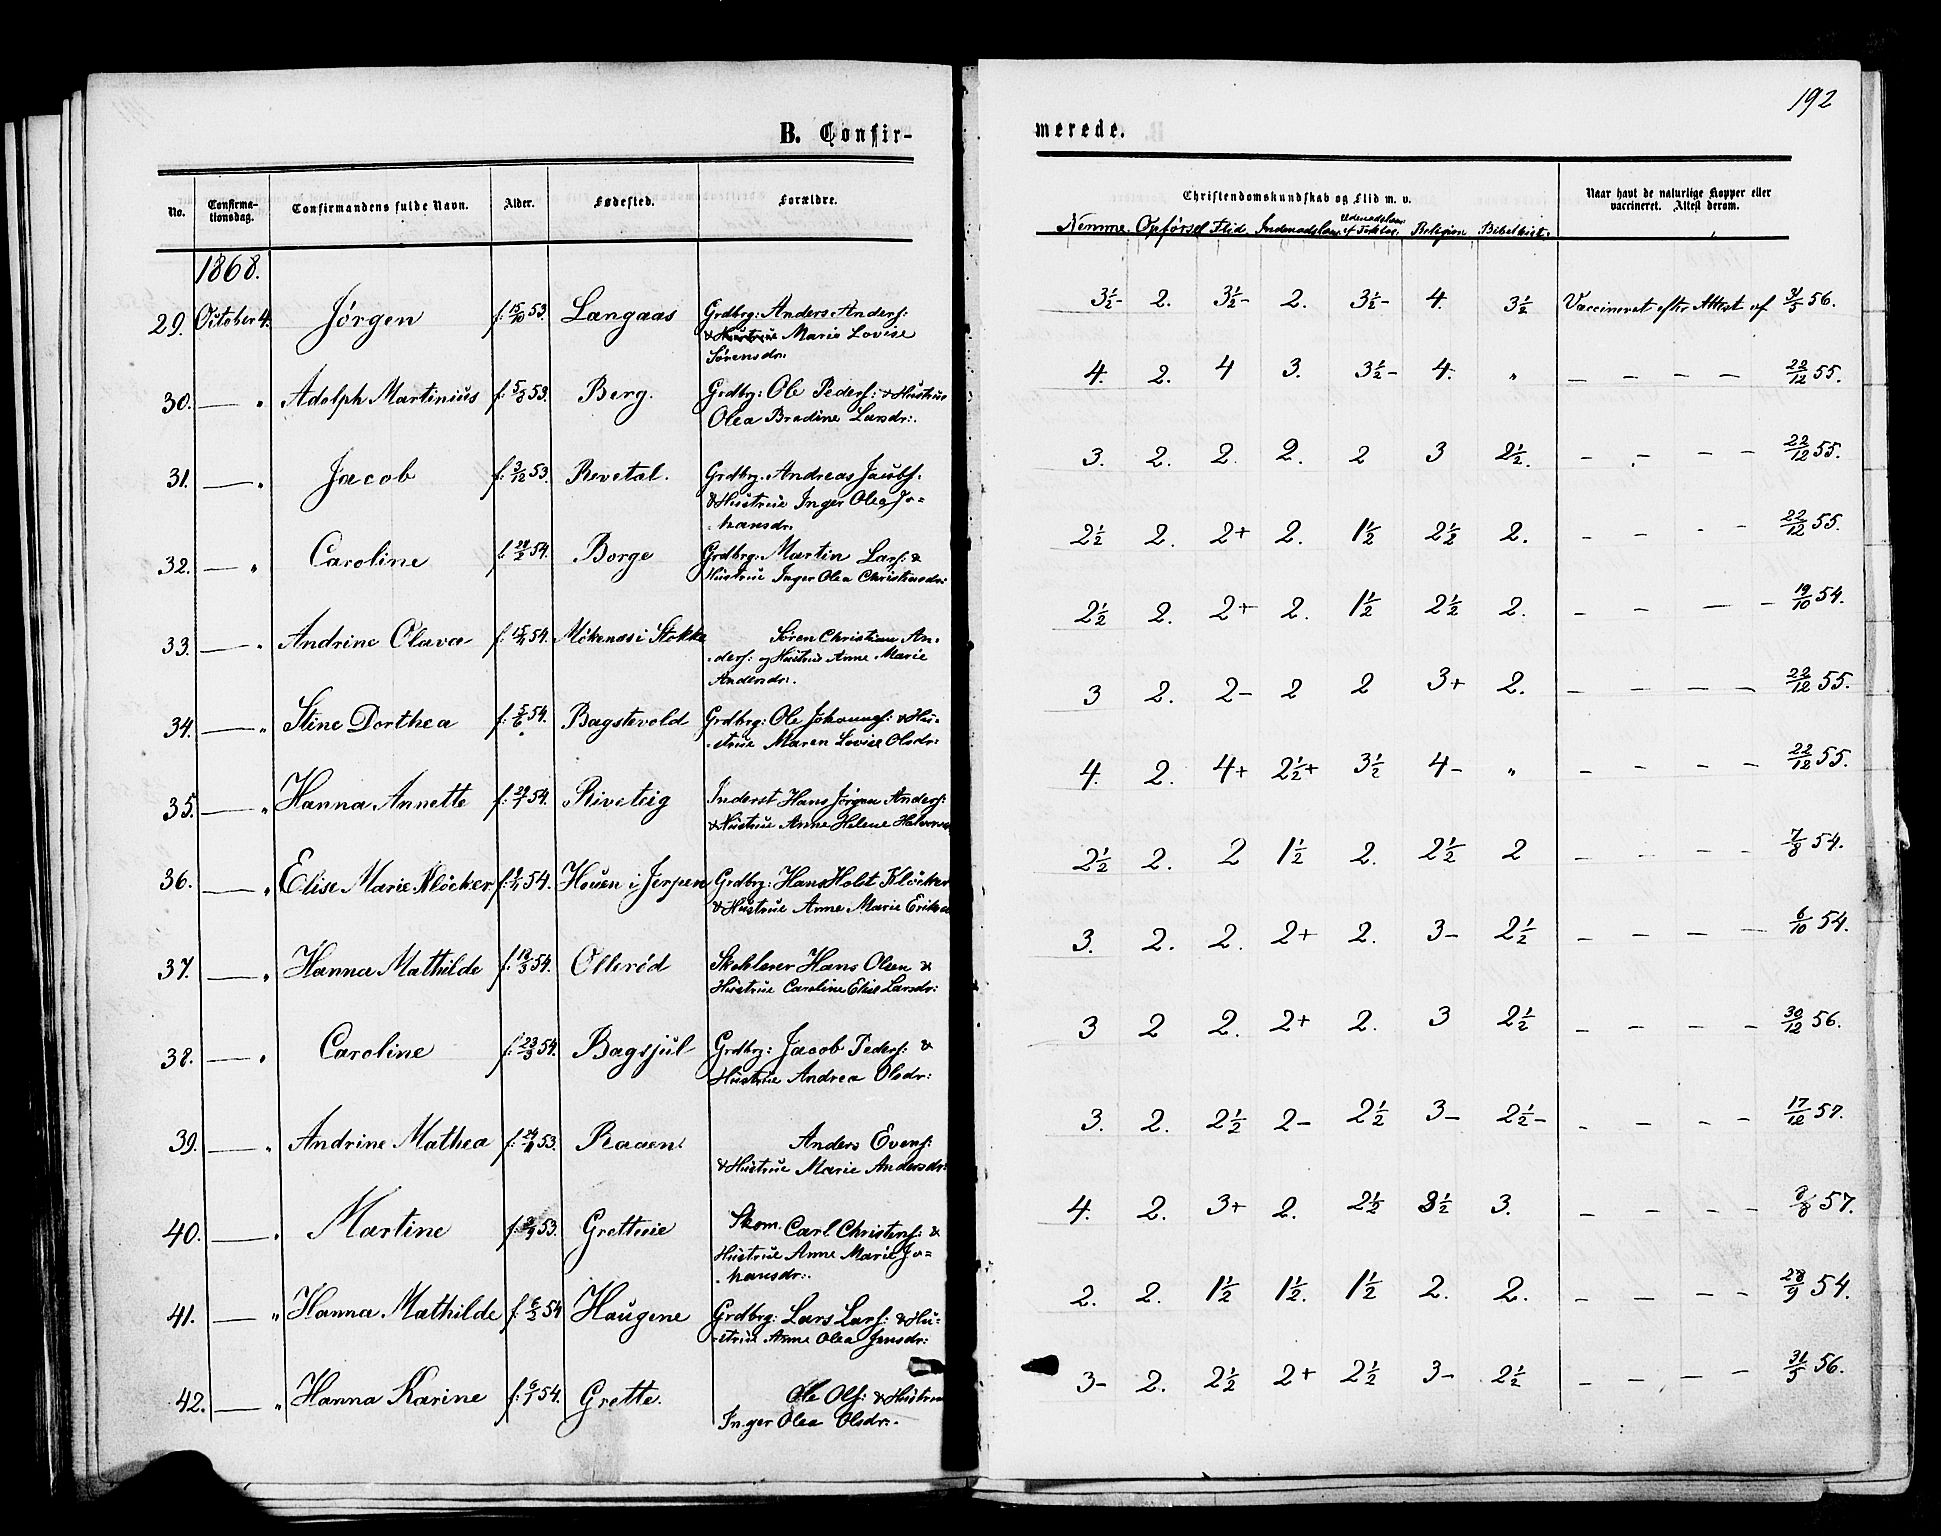 192
B. Confir-
merede.
No. Confirma-tionsdag. Confirmandens fulde Navn. Alder. Fødested. Forældre.
Christendomskundskab og Flid m. v. Naar havt de naturlige Kopper eller vaccineret. Attest derom.
Nemme. Opførsel Flid Indenadslæs. Udenadslæs. Religion Bibelhist.
1868.
29. October 4. Jørgen f. 15/10 53. Langaas Grdbrg: Anders Anders:
& Hustrue Marie Lovise
Sørensdr:
3½- 2. 3½- 2. 3½- 4. 3½ Vaccineret efter Attest af 56.
30. — " Adolph Martinius f. 53. Berg. Grdbrg: Ole Peders: & Hustrue
Olea Bredine Larsdr:.
4. 2. 4 3. 3½- 4. " — — — — 22/12 55.
31. — " Jacob f. 3/12 53. Revetal. Grdbrg. Andreas Jacobs.
& Hustrue Inger Olea Jo=
hansdr.
3. 2. 2. 2. 2 3 2½. — — — — 22/12 55.
32. — " Caroline f. 54. Borge Grdbrg. Martin Lars: &
Hustrue Inger Olea
2½ 2. 2+ 2. 1½ 2½ 2. — — — — 22/12 55.
33. — " Andrine Olava f. 54. i Stokke Søren Christian An-
ders: og Hustrue Anne Marie
2½ 2. 2+ 2. 1½ 2½ 2. — — — — 19/10 54.
34. — " Stine Dorthea f. 5/6 54. Bagstevold Grdbrg: Ole Johanns: & Hu-
strue Maren Lovise Olsdr:
3 2. 2- 2 2 3+ 2. — — — — 22/12 55.
35. — " Hanna Annette f. 54. Riveteig Inderst Hans Jørgen Anders:
& Hustrue Anne Helene
4. 2. 4+ 2½+ 3½ 4- " — — — — 22/12 55.
36. — " Elise Marie Kløcker f. 54. Houen i Jerpen Grdbrg: Hans Holst Kløcker
& Hustrue Anne Marie
2½ 2. 2 1½ 2. 2½ 2 — — — — 7/8 54.
37. — " Hanna Mathilde f. 18/3 54. Ollerød Skolelærer Hans Olsen &
Hustrue Caroline Elise Larsdr:
3. 2. 2. 2+ 2. 3- 2½ — — — — 6/10 54.
38. — " Caroline f. 23/3 54. Bagsjul Grdbrg: Jacob Peders: &
Hustrue Andrea Olsdr:
3 2 2. 2+ 2. 3 2½ — — — — 30/12 56.
39. — " Andrine Mathea f. 53. Raaen Anders Evens:
& Hustrue Marie Andersdr:
3. 2. 2½ 2- 2½ 3- 2½- — — — — 17/12 57.
40. — " Martine f. 53. Gretteie Skom. Carl Christens: &
Hustrue Anne Marie Jo=
hansdr:.
4. 2. 3+ 2. 2½ 3½ 3. — — — — 57.
41. — " Hanna Mathilde f. 6/2 54 Haugene Grdbrg: Lars Lars: & Hu-
strue Anne Olea Jensdr:
2. 2. 1½ 1½. 1½ 2. 2. — — — — 28/9 54.
42. — " Hanna Karine f. 6/1 54. Grette. Ole Ols: & Hustrue
Inger Olea Olsdr:.
3- 2. 2½ 2+ 2½ 3- 2½ — — — — 31/5 56.